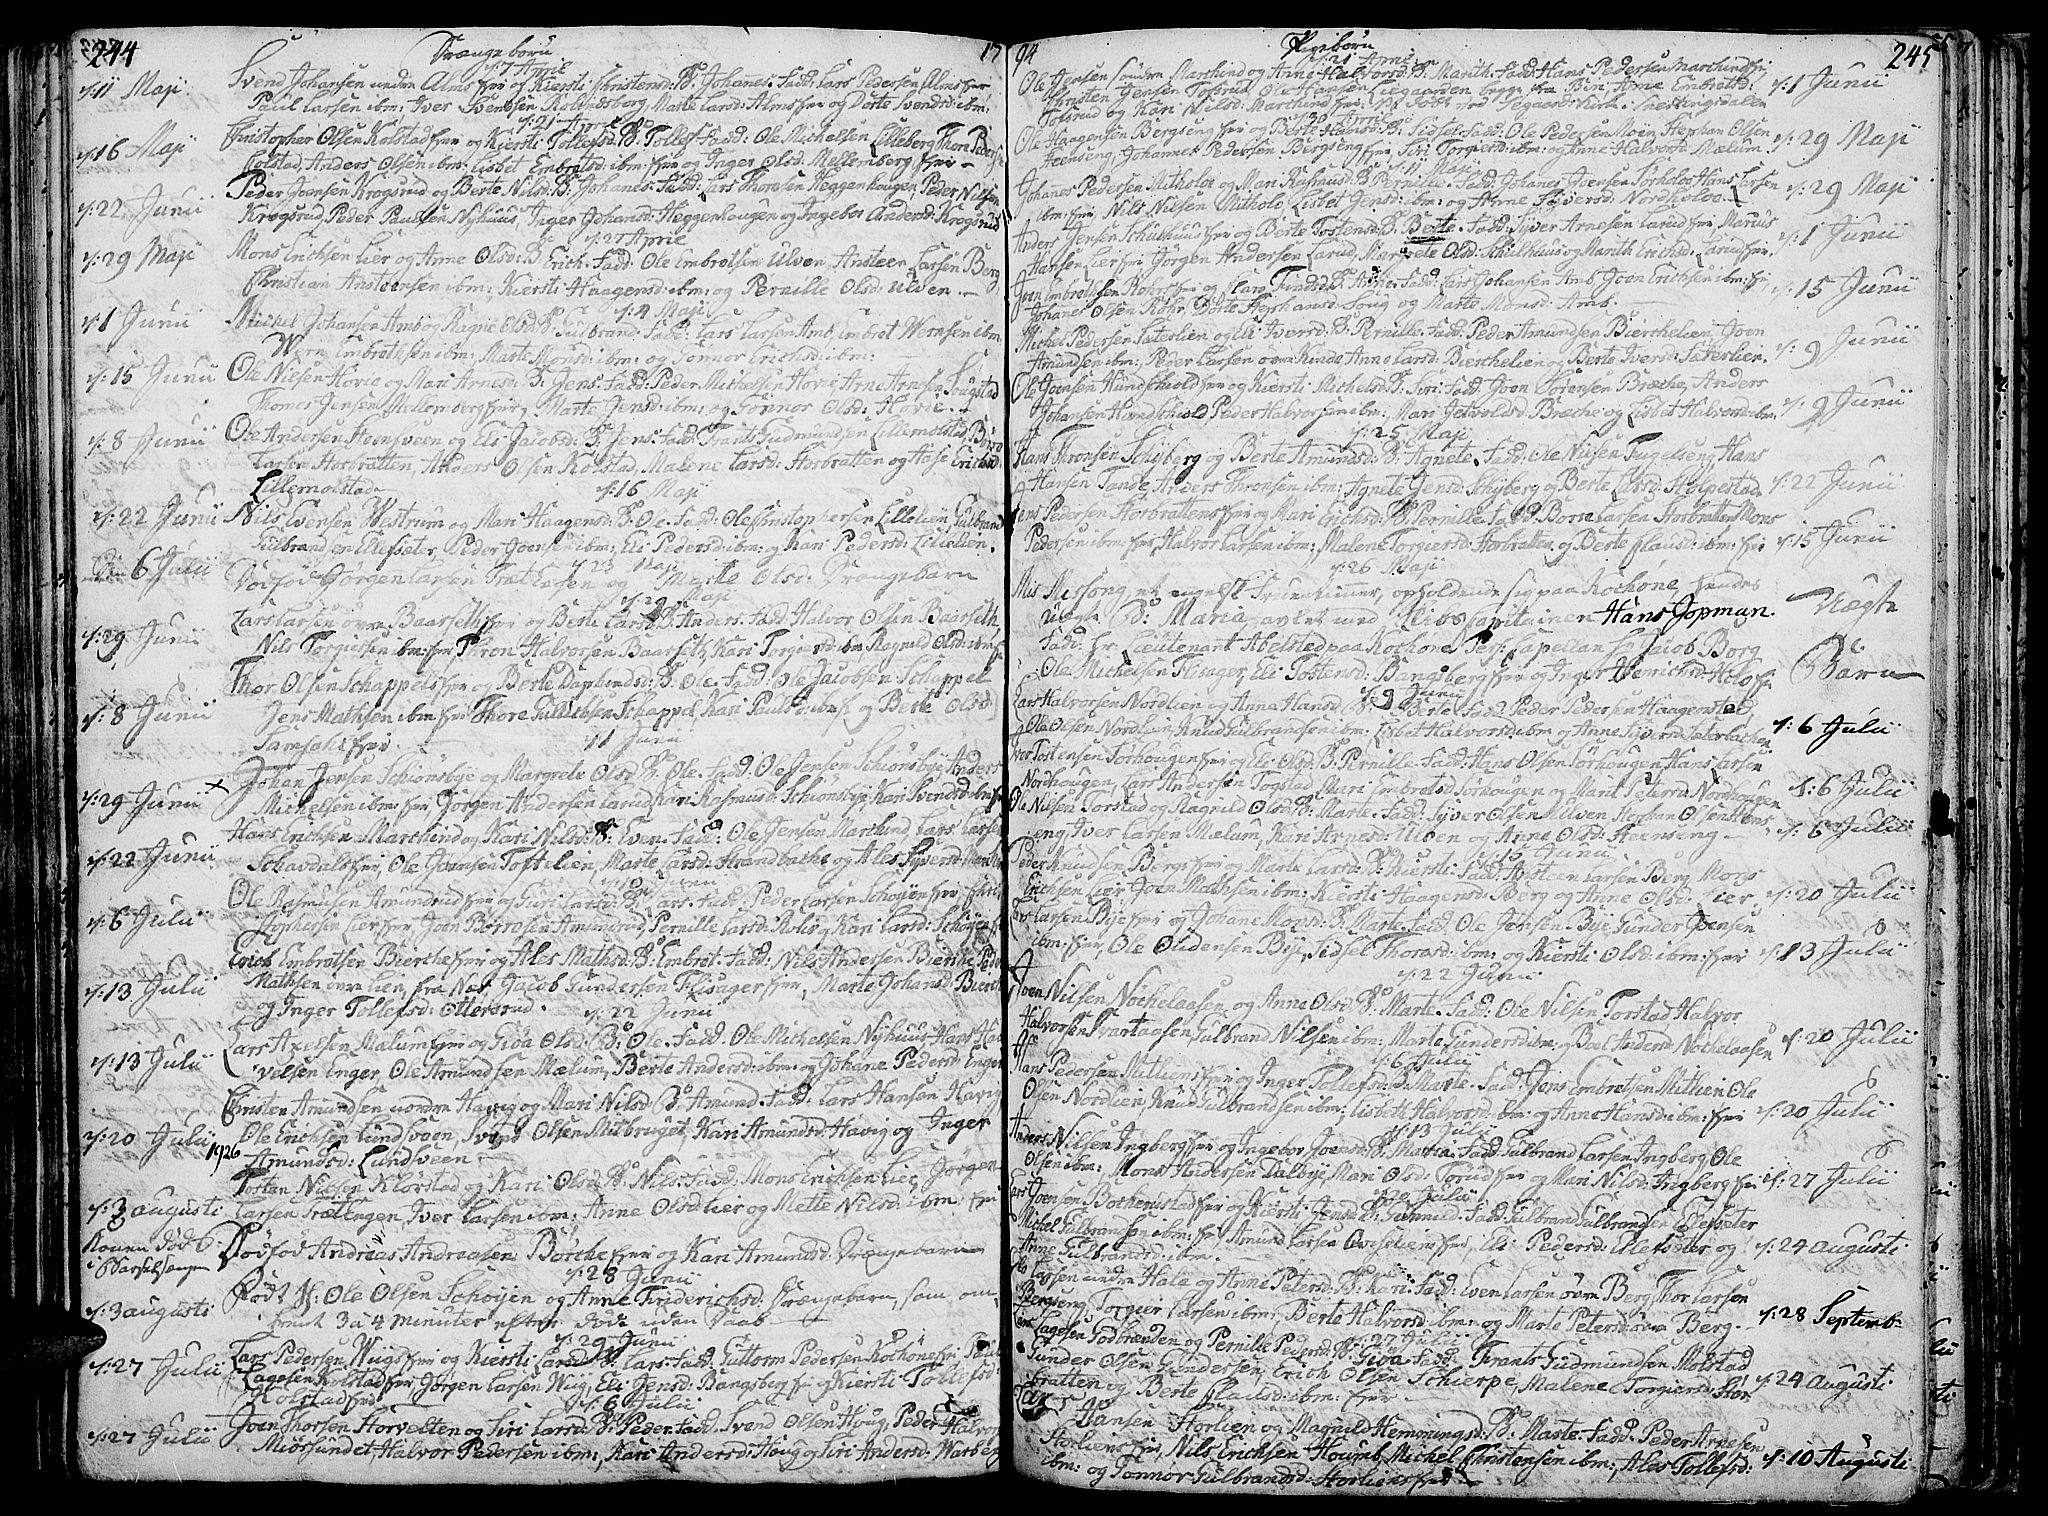 244
Drængebörn
17
d: 7 Aprie
d: 11 Maji
Svend Johansen under Alms fri og Kiersti Christensd: B: Johanes. Fadd: Lars Pedersen Alms fri
Poul Larsen ibm: Iver Svendsen Kolnæsborg, Marte Larsd: Alms fri og Dorte Svendsd: ibm:
d: 21 Aprie
d: 16 Maji
Christopher Olsen Kolstad fri og Kiersti Tollefsd: B: Tollef. Fadd: Ole Michelsen Lilleberg Thore Peders
Kolstad, Anders Olsen ibm: Lisbet Embretsd: ibm: fri og Inger Olsd: Mellemberg fri
d: 22 Junii
Peder Joensen Krogsrud og Berte Nilsd: B: Johanes. Fadd: Lars Thoresen Heggenhougen, Peder Nilsen
Krogsrud, Peder Paulsen Nyhuus, Inger Johansd: Heggenhougen og Ingebor Andersd: Krogsrud
d: 27 Aprie
d: 29 Maji
Mons Erichsen Lier og Anne Olsd: B: Erich. Fadd: Ole Embretsen Ulven, Ansteen Larsen Berg
Christian Ansteensen ibm: Kiersti Haagensd: ibm: og Pernille Olsd: Ulven.
d: 4 Maji
d: 1 Junii
Michel Johansen Amb og Ragnie Olsd: B: Gulbrand. Fadd: Lars Larsen Amb, Embret Wernsen ibm
Wern Embrethsen ibm: Marte Monsd: ibm: og Gonnor Erichsd: ibm:
d: 15 Junii
Ole Nilsen Hovie og Mari Arnesd: B: Jens. Fadd: Peder Michelsen Hovie, Arne Arnesen Sougstad
Thomes Jensen Mellemberg fri, Marte Jensd: ibm: og Gonnor Olsd: Hovie.
d: 8 Junii
Ole Andersen Hoensveen og Eli Jacobsd: B: Jens. Fadd: Frants Gudmundsen Lillemolstad, Borro
Larsen Horbratten, Anders Olsen Kolstad, Malene Larsd: Horbratten og Hose Erichsd:
Lillemolstad
d: 16 Maji
d: 22 Junii
Nils Evensen Westrum og Mari Haagensd: B: Ole. Fadd: Ole Christophersen Lillelien Gulbrand
Gulbrandsen Ellefsæter, Peder Joensen ibm: Eli Pedersd: ibm: og Kari Pedersd: Lillelien.
d: 23 Maji
6 Julii
Dödföd Jörgen Larsen Trættesen og Marte Olsd: Drængebarn
d: 29 Maji
d: 29 Junii
Lars Larsen övre Baarseth fri og Berte Larsd: B: Anders. Fadd: Halvor Olsen Baarseth
Nils Torgiersen ibm: fri Thron Halvorsen Baarseth, Kari Torgiersd: ibm: Ragnild Olsd: ibm: f
d: 8 Junii
Thor Olsen Schappels fri og Berte Dagfindsd: B: Ole. Fadd: Ole Jacobsen Schappel
Jens Mathsen ibm: fri Thore Gulichsen Schappel, Kari Paulsd: ibm: f og Berte Olsd:
Samsahl fri
d: 1 Junii
d: 29 Junii
Johan Jensen Schiönsbye og Margrete Olsd: B: Ole. Fadd: Ole Jensen Schiönsbye Anders
Michelsen ibm: fri Jörgen Andersen Larud, Kari Rasmusd: Schiönsbye Kari Svendsd: ibm: fri
d: 22 Junii
Hans Erichsen Marchlund og Kari Nilsd: B: Even. Fadd: Ole Jensen Marchlund, Lars Larsen
Schavdals fri, Ole Joensen Toftelien, Marte Larsd: Strandbakke og Ales Syversd:
d: 6 Julii
Ole Rasmusen Amundrud fri og Giri Larsd: B: Lars. Fadd: Peder Larsen Schöyen fri Chri
stophersen Lier fri, Joen Borrosen Amundrud, Pernille Larsd: Rolie, Kari Larsd: Schöyen f
d: 13 Julii
Erich Embretsen Bierche fri og Ales Mathsd: B: Embret. Fadd: Nils Andersen Bierche Peder
Mathsen övre Lien, Jacob Gundersen Flisager fri, Marte Johansd: Bierch
og Inger Tollefsd: Ottersrud.
d: 22 Junii
d: 13 Julii
Lars Axelsen Mælum fri og Gioa Olsd: B: Ole. Fadd. Ole Michelsen Nyhuus Hans Ha
velsen Enger, Ole Amundsen Mælum, Berte Andersd: ibm: og Johane Pedersd: Enger
d: 20 Julii
Christen Amundsen nordre Havig og Mari Nilsd: B: Amund. Fadd: Lars Hansen Havig
Ole Erichsen Lundsveen, Svend Olsen Mitbruget, Kari Amundsd: Havig og Inger
1926
Amundsd: Lundsveen
d: 3 augusti
Tosten Nilsen Klorstad og Kari Olsd: B: Nils. Fadd: Mons Erichsen Lier, Jörgen
Larsen Trættengen, Iver Larsen ibm: Anne Olsd: Lier og Mette Nilsd: ibm: fri
Konen död
i Barselsengen
Dödföd Andreas Andreasen Börche fri og Kari Amundsd: Drængebarn
d: 28 Junii
d: 3 augusti
Födt H: Ole Olsen Schöyen og Anne Friderichsd: Drængebarn, som om
trent 3 a 4 minuter efter döde uden Daab
d: 29 Junii
d: 27 Julii
Lars Pedersen Wiigs fri og Kiersti Larsd: B: Lars. Fadd: Guttorm Pedersen Rochöne fri
Lagesen Kolstad fri Jörgen Larsen Wiig, Eli Jensd: Bangsberg fri og Kiersti Tollefsd:
Kolstad fri
d: 6 Julii
d: 27 Julii
Joen Thorsen Horvelten og Siri Larsd: B: Peder. Fadd: Svend Olsen Houg, Peder Halvor
Miörsundet, Halvor Pedersen ibm:, Kari Andersd: Houg og Siri Andersd: Warberg
94
Pigebörn
245
d: 21 Aprie
Ole Jensen söndre Marchlund og Anne Halvorsd: B: Marith. Fadd: Hans Pedersen Marchlund fri
Christen Jensen Tofsrud Ole Hansen Liegaarden begge fra Biri Anne Embretsd:
d: 1 Junii
Tofsrud og Kari Nilsd: Marchlund fri.
d: 30 Aprie
Ole Haagensen Bergseng fri og Berte Hansd: B: Sidsel. Fadd: Ole Pedersen Moën, Stephan Olsen
d: 29 Maji
Steenseng, Johannes Pedersen Bergseng fri, Siri Torgiersd: ibm: og Anne Halvorsd: Mælum
d: 11 Maji
Johanes Pedersen Mitholoe og Mari Rasmusd: B: Pernille. Fadd: Johanes Joensen Sörholoe Hans Larsen
d: 29 Maji
ibm: fri Nils Nilsen Mitholoe, Lisbet Jensd: ibm: og Anne Syversd: Nordholoe
Anders Jensen Schulhuus fri og Berte Tostensd: B: Berte. Fadd: Syver Arnesen Larud fri Marius
d: 1 Junii
Hansen Lier fri Jörgen Andersen Larud, Margrete Olsd: Schulhuus og Marith Erichsd: Larud fri
Joen Embrethsen Röhrs fri og Clare Tundsd: B: Anne. Fadd: Lars Johansen Amb, Joen Erichsen ibm: fri
d: 15 Junii
Johanes Olsen Röhr, Dorte Stephansd: Soug og Marte Monsd: Amb.
Michel Pedersen Sæterslien og Eli Iversd: B: Pernille. Fadd: Peder Amundsen Bierchelien Joen
d: 9 Junii
Amundsen ibm:, Peder Larsen övre Kinde, Anne Larsd: Bierchelien og Berte Iversd: Sæterslien
Ole Joensen Hundschiold fri og Kiersti Michelsd: B: Siri. Fadd: Joen Sörensen Bræche, Anders
d: 9 Junii
Johansen Hundschiold, Peder Halvorsen ibm: Mari Jetvolds: Bræche og Lisbet Halvorsd: ibm:
d: 25 Maji
Hans Thronsen Schyberg og Berte Amundsd: B: Agnete. Fadd: Ole Nilsen Fuglseng, Hans
Hansen Tande Anders Thronsen ibm: Agnete Jensd: Schyberg og Berte Larsd: Helpestad
d: 22 Junii
Jens Pedersen Horbrattens fri og Mari Erichsd: B: Pernille. Fadd: Borre Larsen Horbratten Mons
d: 15 Junii
Pedersen ibm: fri, Halvor Larsen ibm: Malene Torgiersd: Horbratten og Berte Clausd: ibm: fri
d: 26 Maji
Mis Missong, et engelsk Fruentimmer, opholdende sig paa Rochöne, hendes
Uægte
uægte B: Maria avlet med Skibs Capitainen Hans Jopman.
Fadd: Hr. Lieutenant Abelsted paa Rochöne Pers: Capellan Hr Jacob Borg
Barn
Ole Michelsen Flisager, Eli Tostensd: Bangsberg fri og Inger Henrichsd: Holoe fri
d: 9 Junii
Lars Halvorsen Nordlien og Anne Hansd: B: Berte. Fadd: Peder Pedersen Haagenstad,
d: 6 Julii
Ole Olsen Nordlien, Knud Gulbrandsen ibm: Lisbet Halvorsd: ibm og Anne Syversd: Sæterbachen
Iver Tostensen Sörhougen fri og Eli Olsd: B: Pernille. Fadd: Hans Olsen Sörhougen Hans Larsen
d: 6 Julii
Nordhougen, Lars Andersen Togstad, Mari Embretsd: Sörhougen og Marit Petersd: Nordhougen
Ole Nilsen Torstad og Ragnild Olsd: B: Marte. Fadd: Syver Olsen Ulven Stephan Olsen Steens
d: 6 Julii
eng, Iver Larsen Mælum, Kari Arnesd: Ulven og Anne Olsd: Steenseng
d: 15 Junii
Peder Knudsen Bergs fri og Marte Larsd: B: Kiersti. Fadd: Ansteen Larsen Berg Mons
d: 20 Julii
Erichsen Lier, Joen Mathsen ibm: Kiersti Haagensd: Berg og Anne Olsd: Lier
Lars Larsen Bye fri og Johane Monsd: B: Marte. Fadd: Ole Jensen Bye Gunder Joensen
d: 13 Julii
ibm: fri, Ole Oudensen Bye, Sidsel Thorsd: ibm: og Kiersti Olsd: ibm: fri
d: 22 Junii
Joen Nilsen Nöchelaasen og Anne Olsd: B: Marte. Fadd: Ole Nilsen Torstad Halvor
d: 20 Julii
Halvorsen Svartaasen Gulbrand Nilsen ibm: Marte Gundersd: ibm: og Boel Andersd: Nöchelaasen
d: 6 Julii
Hans Pedersen Mitliens fri og Inger Tollefsd: B: Marte. Fadd: Jens Embretsen Mitlien Ole
d: 20 Julii
Olsen Nordlien, Knud Gulbrandsen ibm: Lisbeth Halvorsd: ibm: og Anne Hansd: ibm: fri
d: 13 Julii
Anders Nilsen Ingberg fri og Ingebor Joensd: B: Maria. Fadd: Gulbrand Larsen Ingberg Ole
d: 27 Julii
Olsen ibm: Mons Andersen Dalbye, Mari Olsd: Torud fri og Mari Nilsd: Ingberg fri
d: 20 Julii
Lars Joensen Botherustad fri og Kiersti Jensd: B: Gunnild. Fadd: Gulbrand Gulbrandsen Ellefsæter
d: 24 augusti
Michel Gulbrandsen ibm: fri Amund Larsen Aveseliens fri, Eli Pedersd: Ellefsæter og
Anne Gulbrandsd: ibm.
Larsen under Hole og Anne Petersd: B: Kari. Fadd: Even Larsen övre Berg, Thor Larsen
d: 28 Septemb
Bergseng, Torgier Larsen ibm:, Berte Halvorsd: ibm: og Marte Petersd: övre Berg
d: 27 Julii
Lars Lagesen Godbrænden og Pernille Pedersd: B: Gioa. Fadd: Frants Gudmundsen Molstad
d: 24 augusti
Gunder Olsen Gundersen, Erich Olsen Schierpe, Malene Torgiersd: Hor
bratten og Berte Clausd: ibm: fri
Lars Hansen Horlien og Magnild Hemmingsd: B: Marte. Fadd: Peder Arnesen
d: 10 Augusti
Horliens fri, Nils Erichsen Houmb, Michel Christensen ibm:, Ales Tollefsd:
ibm: og Gonnor Gulbrandsd: Horliens fri